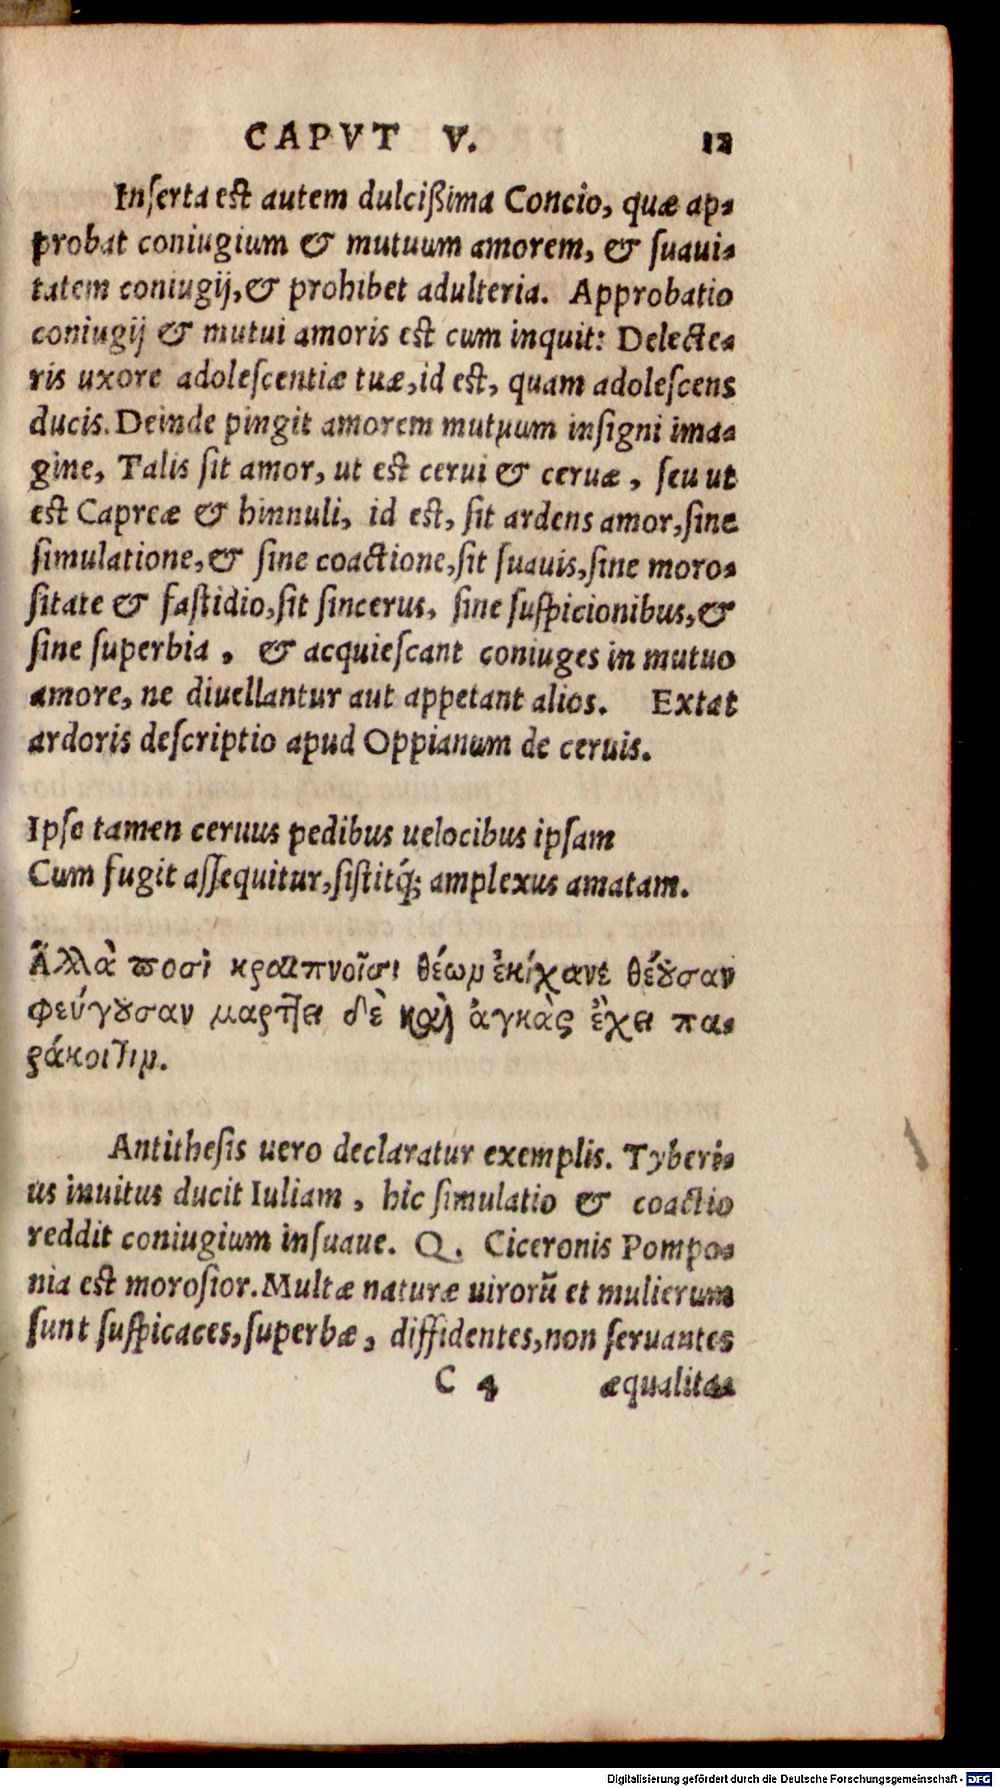 CAPVT V. 12
Inserta est autem dulcißima Concio, quæ ap-
probat coniugium & mutuum amorem, & suaui-
tatem coniugij, & prohibet adulteria. Approbatio
coniugij & mutui amoris est cum inquit: Delecte-
ris uxore adolescentiæ tuæ, id est, quam adolescens
ducis. Deinde pingit amorem mutuum insigni ima-
gine, Talis sit amor, ut est cerui & ceruæ, seu ut
est Capreæ & hinnuli, id est, sit ardens amor, sine
simulatione, & sine coactione, sit suauis, sine moro-
sitate & fastidio, sit sincerus, sine suspicionibus, &
sine superbia, & acquiescant coniuges in mutuo
amore, ne diuellantur aut appetant alios. Extat
ardoris descriptio apud Oppianum de ceruis.
Ipse tamen ceruus pedibus uelocibus ipsam
Cum fugit assequitur, sistitq́; amplexus amatam.
Ἀλλὰ ποσὶ κραιπνοῖσι θέων ἐκίχανε θέουσαν
φεύγουσαν μάρπτει δὲ καὶ ἀγκὰς ἔχει πα-
ράκοιτιν.
Antithesis uero declaratur exemplis. Tyberi-
us inuitus ducit Iuliam, hic simulatio & coactio
reddit coniugium insuaue. Q. Ciceronis Pompo-
nia est morosior. Multæ naturæ uirorũ et mulierum
sunt suspicaces, superbæ, diffidentes, non seruantes
C 4 æqualita-
Digitalisierung gefördert durch die Deutsche Forschungsgemeinschaft - DFG